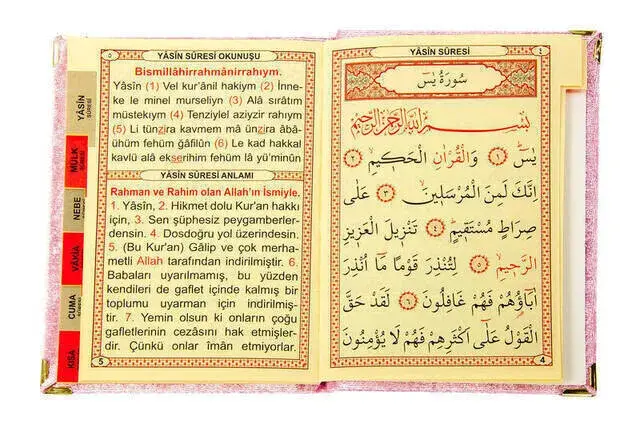 YÂSÎN SÛRESİ
٤
سُورَةُ يٰسٓ
بِسْمِ اللّٰهِ الرَّحْمٰنِ الرَّحِيمِ
يٰسٓ ﴿١﴾ وَالْقُرْاٰنِ الْحَكِيمِ ﴿٢﴾
اِنَّكَ لَمِنَ الْمُرْسَلِينَ ﴿٣﴾ عَلٰى
صِرَاطٍ مُسْتَقِيمٍ ﴿٤﴾ تَنْزِيلَ الْعَزِيزِ
الرَّحِيمِ ﴿٥﴾ لِتُنْذِرَ قَوْمًا مَٓا اُنْذِرَ
اٰبَٓاؤُهُمْ فَهُمْ غَافِلُونَ ﴿٦﴾ لَقَدْ حَقَّ
الْقَوْلُ عَلٰٓى اَكْثَرِهِمْ فَهُمْ لَا يُؤْمِنُونَ
4
٥
YÂSÎN SÛRESİ OKUNUŞU
Bismillâhirrahmânirrahıym.
Yâsîn (1) Vel kur'ânil hakiym (2) İnne-
ke le minel murseliyn (3) Alâ sırâtım
müstekıym (4) Tenziylel aziyzir rahıym
(5) Li tünzira kavmem mâ ünzira âbâ-
ühüm fehüm ğâfilûn (6) Le kad hakkal
kavlü alâ ekserihim fehüm lâ yü'minûn
YÂSÎN SÛRESİ ANLAMI
Rahman ve Rahim olan Allah'ın İsmiyle.
1. Yâsîn, 2. Hikmet dolu Kur'an hakkı
için, 3. Sen şüphesiz peygamberler-
densin. 4. Dosdoğru yol üzerindesin.
5. (Bu Kur'an) Gâlip ve çok merha-
metli Allah tarafından indirilmiştir. 6.
Babaları uyarılmamış, bu yüzden
kendileri de gaflet içinde kalmış bir
toplumu uyarman için indirilmiş-
tir. 7. Yemin olsun ki onların çoğu
gafletlerinin cezasını hak etmişler-
dir. Çünkü onlar îmân etmiyorlar.
5
YÂSÎN
SÛRESİ
MÜLK
NEBE
VAKIA
CUMA
KISA